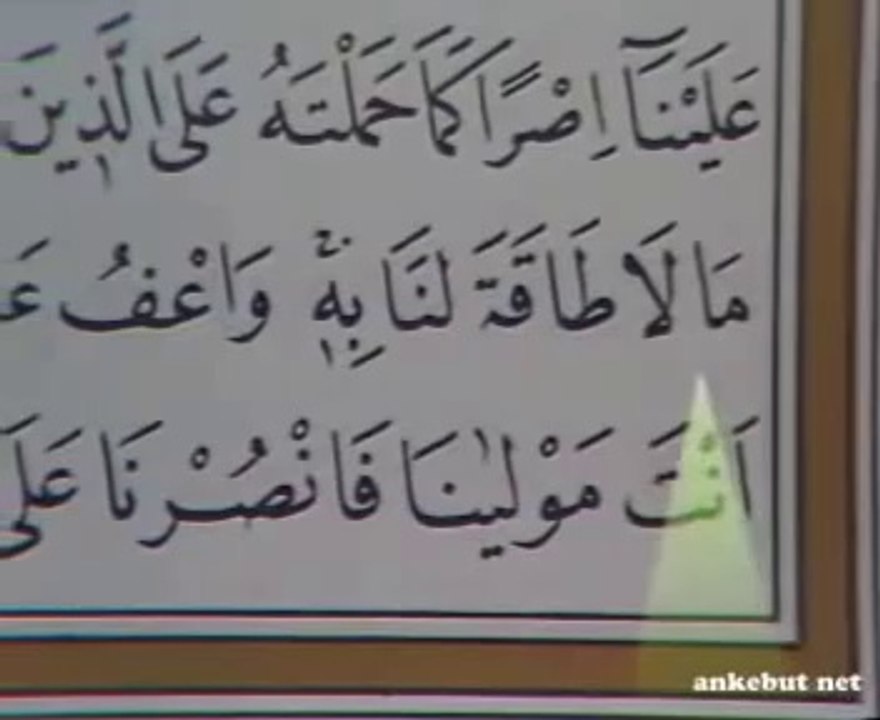 عَلَيْنَٓا اِصْرًا كَمَا حَمَلْتَهُ عَلَى الَّذ۪ينَ
مَا لَا طَاقَةَ لَنَا بِه۪ۚ وَاعْفُ
اَنْتَ مَوْلٰينَا فَانْصُرْنَا عَلَى
ankebut net